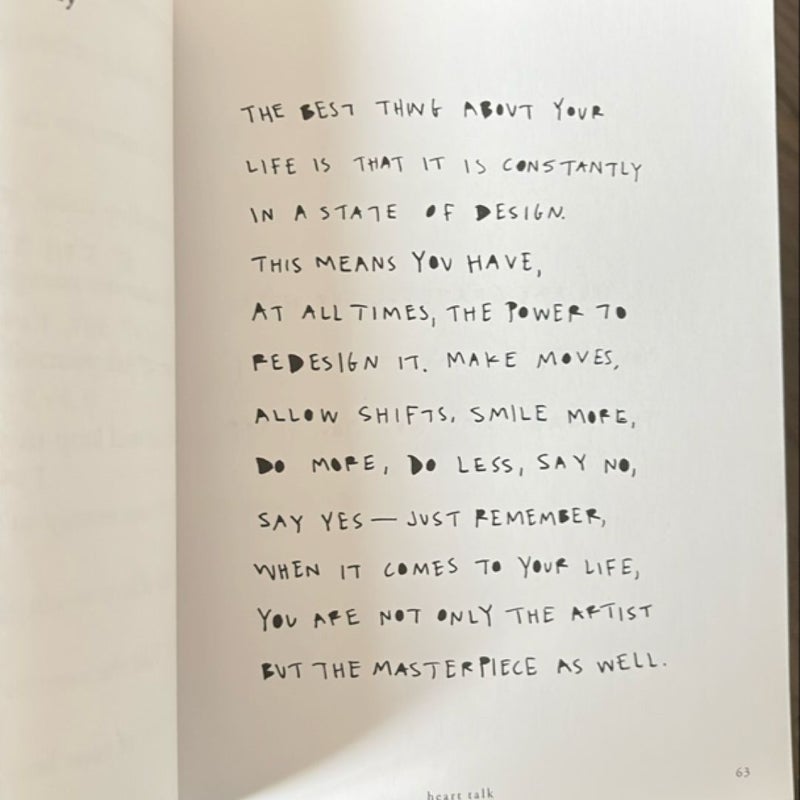 THE BEST THING ABOUT YOUR
LIFE IS THAT IT IS CONSTANTLY
IN A STATE OF DESIGN.
THIS MEANS YOU HAVE,
AT ALL TIMES, THE POWER TO
REDESIGN IT. MAKE MOVES,
ALLOW SHIFTS, SMILE MORE,
DO MORE, DO LESS, SAY NO,
SAY YES — JUST REMEMBER,
WHEN IT COMES TO YOUR LIFE,
YOU ARE NOT ONLY THE ARTIST
BUT THE MASTERPIECE AS WELL.
63
heart talk